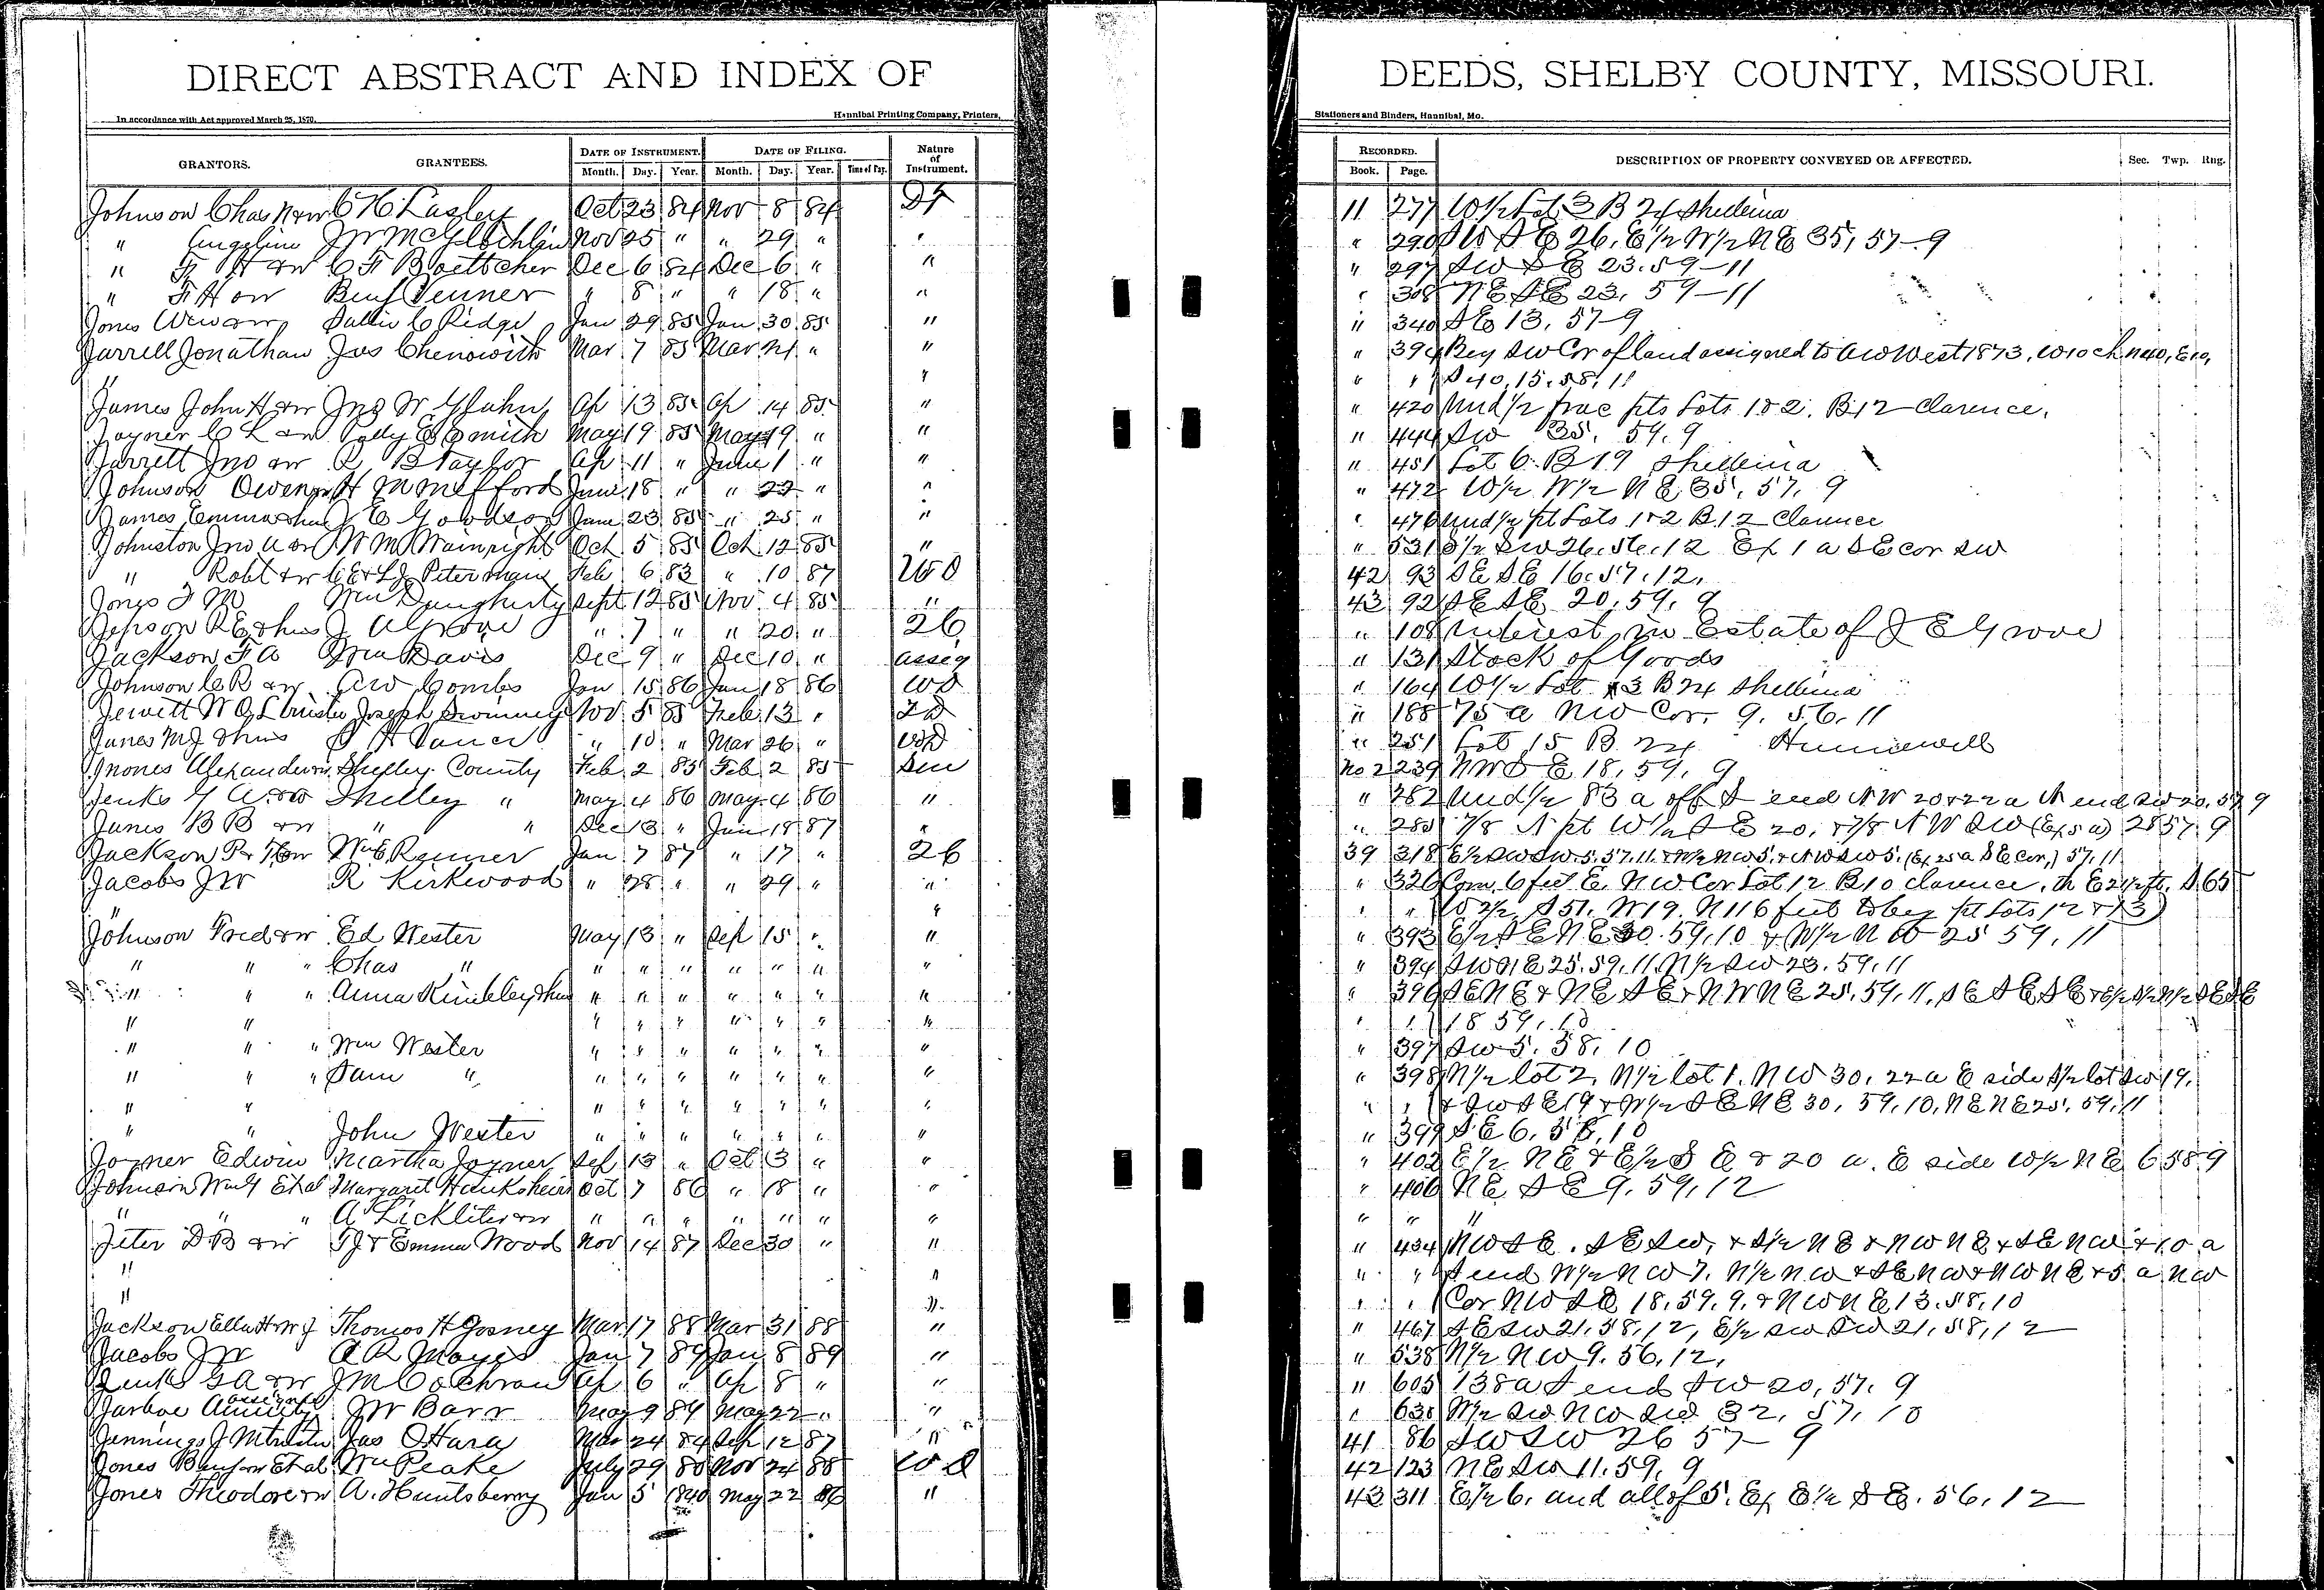 DIRECT ABSTRACT AND INDEX OF
In accordance with Act approved March 25, 1870.
Hannibal Printing Company, Printers,
GRANTORS. GRANTEES. DATE OF INSTRUMENT. DATE OF FILING. Nature of Instrument.
Month. Day. Year. Month. Day. Year. Time of Day.
Johnson Chas &wr C H Lasley Oct 23 84 Nov 8 84
" Angeline Nov 25 " " 29 " "
" F H &wr C F Boettcher Dec 6 84 Dec 6 " "
" F H &wr Benj Venner " 8 " " 18 " "
Jones Wm &wr Sallie C Ridge Jan 29 85 Jan 30 85 "
Jarrell Jonathan Jos Chenowith Mar 7 85 Mar 21 " "
" "
James John H &wr Jno W Glahn Ap 13 85 Ap 14 85 "
Joyner C L &wr Polly E Smith May 19 85 May 19 " "
Jarrett Jno &wr R B Taylor Ap 11 " June 1 " "
Johnson Owen M Mefford June 18 " " 22 " "
James Emma &hus J E Goodson June 23 85 " 25 " "
Johnston Jno A &wr W M Wainright Oct 5 85 Oct 12 85 "
" Robt &wr C E & L J Peterman Feb 6 83 " 10 87
Jones J M Wm Daugherty Sept 12 85 Nov 4 85 "
Jepson R E &hus J A Grove " 7 " " 20 " 26
Jackson F A Wm Davis Dec 9 " Dec 10 " assig
Johnson C R &wr A W Combs Jan 15 86 Jan 18 86 WD
Jewett W O L trustee Joseph Swinney Nov 5 85 Feb 13 "
Janes M J &hus " 10 " Mar 26 " WD
Shelby County Feb 2 85 Feb 2 85
Jenks G A &wr Shelby " May 4 86 May 4 86 "
Janes B B &wr " " Dec 13 " Jan 18 87 "
Jackson R &wr Wm E Renner Jan 7 87 " 17 " 26
Jacobs J W R Kirkwood " 28 " " 29 " "
" "
Johnson Fred &wr Ed Wester May 13 " Sept 15 " "
" " " Chas " " " " " " " "
" " " Anna Kinkley &hus " " " " " " "
" " " " " " " " "
" " " Wm Wester " " " " " " "
" " " Sam " " " " " " " "
" " " " " " " " "
" " John Wester " " " " " " "
Joyner Edwin Martha Joyner Sep 13 " Oct 3 " "
Johnson Wm Y Etal Margaret Oct 7 86 " 18 " "
" " " A Lickliter &wr " " " " " " "
Jeter D B &wr T J & Emma Wood Nov 14 87 Dec 30 " "
" "
" "
Jackson Ella H & W J Thomas H Gosney Mar 17 88 Mar 31 88 "
Jacobs J W A R Mayes Jan 7 89 Jan 8 89 "
Jenks G A &wr J M Cochran Ap 6 " Ap 8 " "
Jarboe J W Barr May 9 89 May 22 " "
Jennings J M trustee Jas OHara Mar 24 84 Sep 12 87 "
Jones Etal Wm Peake July 29 80 Nov 24 88 WD
Jones Theodore &wr A. Huntsberry Jan 5 1840 May 22 86 "
DEEDS, SHELBY COUNTY, MISSOURI.
Stationers and Binders, Hannibal, Mo.
RECORDED. DESCRIPTION OF PROPERTY CONVEYED OR AFFECTED. Sec. Twp. Rng.
Book. Page.
11 277 W½ Lot 3 B 24 Shelbina
" 290 SW SE 26, E½ W½ NE 35, 57-9
" 297 SW SE 23. 59-11
" 308 NE SE 23, 59-11
" 340 SE 13, 57-9
" 394 Beg SW Cor of land assigned to A W West 1873, W10 ch N40, E10,
" " S40, 15, 58, 11
" 420 Und½ frac pts Lots 1&2, B12 Clarence,
" 444 SW 35, 59, 9
" 451 Lot 6 B 19 Shelbina
" 472 W½ W½ NE 35, 57, 9
" 476 Und½ pt Lots 1&2 B.12 Clarence
" 531 S½ SW 26, 56, 12 Ex 1 a SE cor SW
42 93 SE SE 16, 57, 12,
43 92 SE SE 20, 59, 9
" 108 Interest in Estate of J E Grove
" 131 Stock of Goods
" 164 W½ Lot 3 B 24 Shelbina
" 188 75 a NW Cor, 9, 56, 11
" 251 Lot 15 B. 24 Hunnewell
No 2 239 NW SE 18, 59, 9
" 282 Und½ 83 a off S end NW 20 & 22 a N end SW 20, 57 9
" 285 7/8 N pt W½ SE 20, & 7/8 NW SW (Ex 5 a) 28 57, 9
39 318 E½ SW SW 5, 57, 11, & W½ NW 5, & NW SW 5, (Ex 25 a SE Cor,) 57, 11
" 326 Com, 6 feet E, NW Cor Lot 12 B10 Clarence, th E 21½ ft, S 65
" " W 2½ S 51, W 19, N 116 feet to beg pt Lots 12 & 13)
" 393 E½ SE NE 30, 59, 10 & W½ NW 25 59, 11
" 394 SW NE 25, 59, 11, N½ SW 23, 59, 11
" 396 SE NE & NE SE & NW NE 25, 59, 11, SE SE SE & E½ S½ N½ SE SE
" " 18 59, 10
" 397 SW 5, 58, 10
" 398 N½ lot 2, N½ lot 1, NW 30, 22 a E side S½ lot SW 19,
" " & SW SE 19 & W½ SE NE 30, 59, 10, NE NE 25, 59, 11
" 399 SE 6, 58, 10
" 402 E½ NE & E½ SE & 20 a. E side W½ NE 6 58 9
" 406 NE SE 9, 59, 12
" " "
" 434 NW SE, SE SW, & S½ NE & NW NE & SE NW & 10 a
" " S end W½ NW 7, N½ NW & SE NW & NW NE & 5 a NW
" " Cor NW SE 18, 59, 9, & NW NE 13, 58, 10
" 467 SE SW 21, 58, 12, E½ SW SW 21, 58, 12
" 538 N½ NW 9, 56, 12,
" 605 138 a S end SW 20, 57, 9
" 630 W½ SW NW SW 32, 57, 10
41 86 SW SW 26 57-9
42 123 NE SW 11, 59, 9
43 311 E½ 6, and all of 5, Ex E½ SE. 56, 12